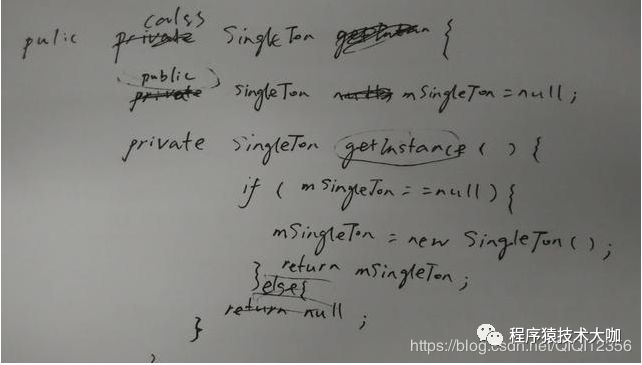 calss
pulic private SingleTon {
public
private singleTon mSingleTon = null;
private SingleTon getInstance ( ) {
if ( mSingleTon == null ) {
mSingleTon = new SingleTon( ) ;
} return mSingleTon ;
else{
return null ;
}
程序猿技术大咖
https://blog.csdn.net/QIQI12356